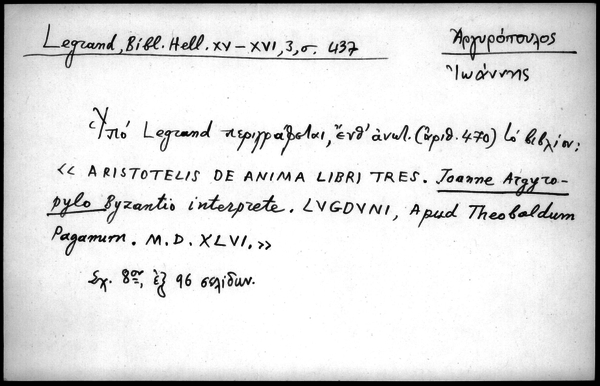 Legrand, Bibl. Hell. XV – XVI, 3, σ. 437
Ἀργυρόπουλος
Ἰωάννης
Ὑπό Legrand περιγράφεται, ἔνθ' ἀνωτ. (ἀριθ. 470) τό βιβλίον:
« ARISTOTELIS DE ANIMA LIBRI TRES. Joanne Argyro-
pylo Byzantio interprete. LVGDVNI, Apud Theobaldum
Paganum. M. D. XLVI. »
Σχ. 8ον, ἐξ 96 σελίδων.